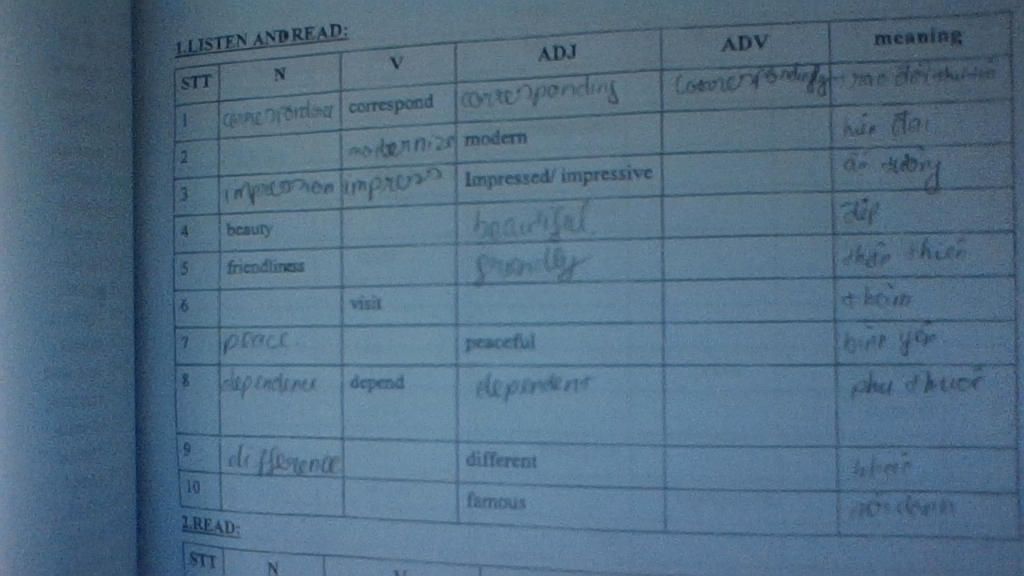 1.LISTEN AND READ:
STT N V ADJ ADV meaning
1 correspond corresponding
2 modernize modern hiện đại
3 impression impress Impressed/ impressive ấn tượng
4 beauty beautiful đẹp
5 friendliness thân thiện
6 visit thăm
7 peace peaceful bình yên
8 dependence depend dependent phụ thuộc
9 difference different khác
10 famous
2.READ:
STT N V